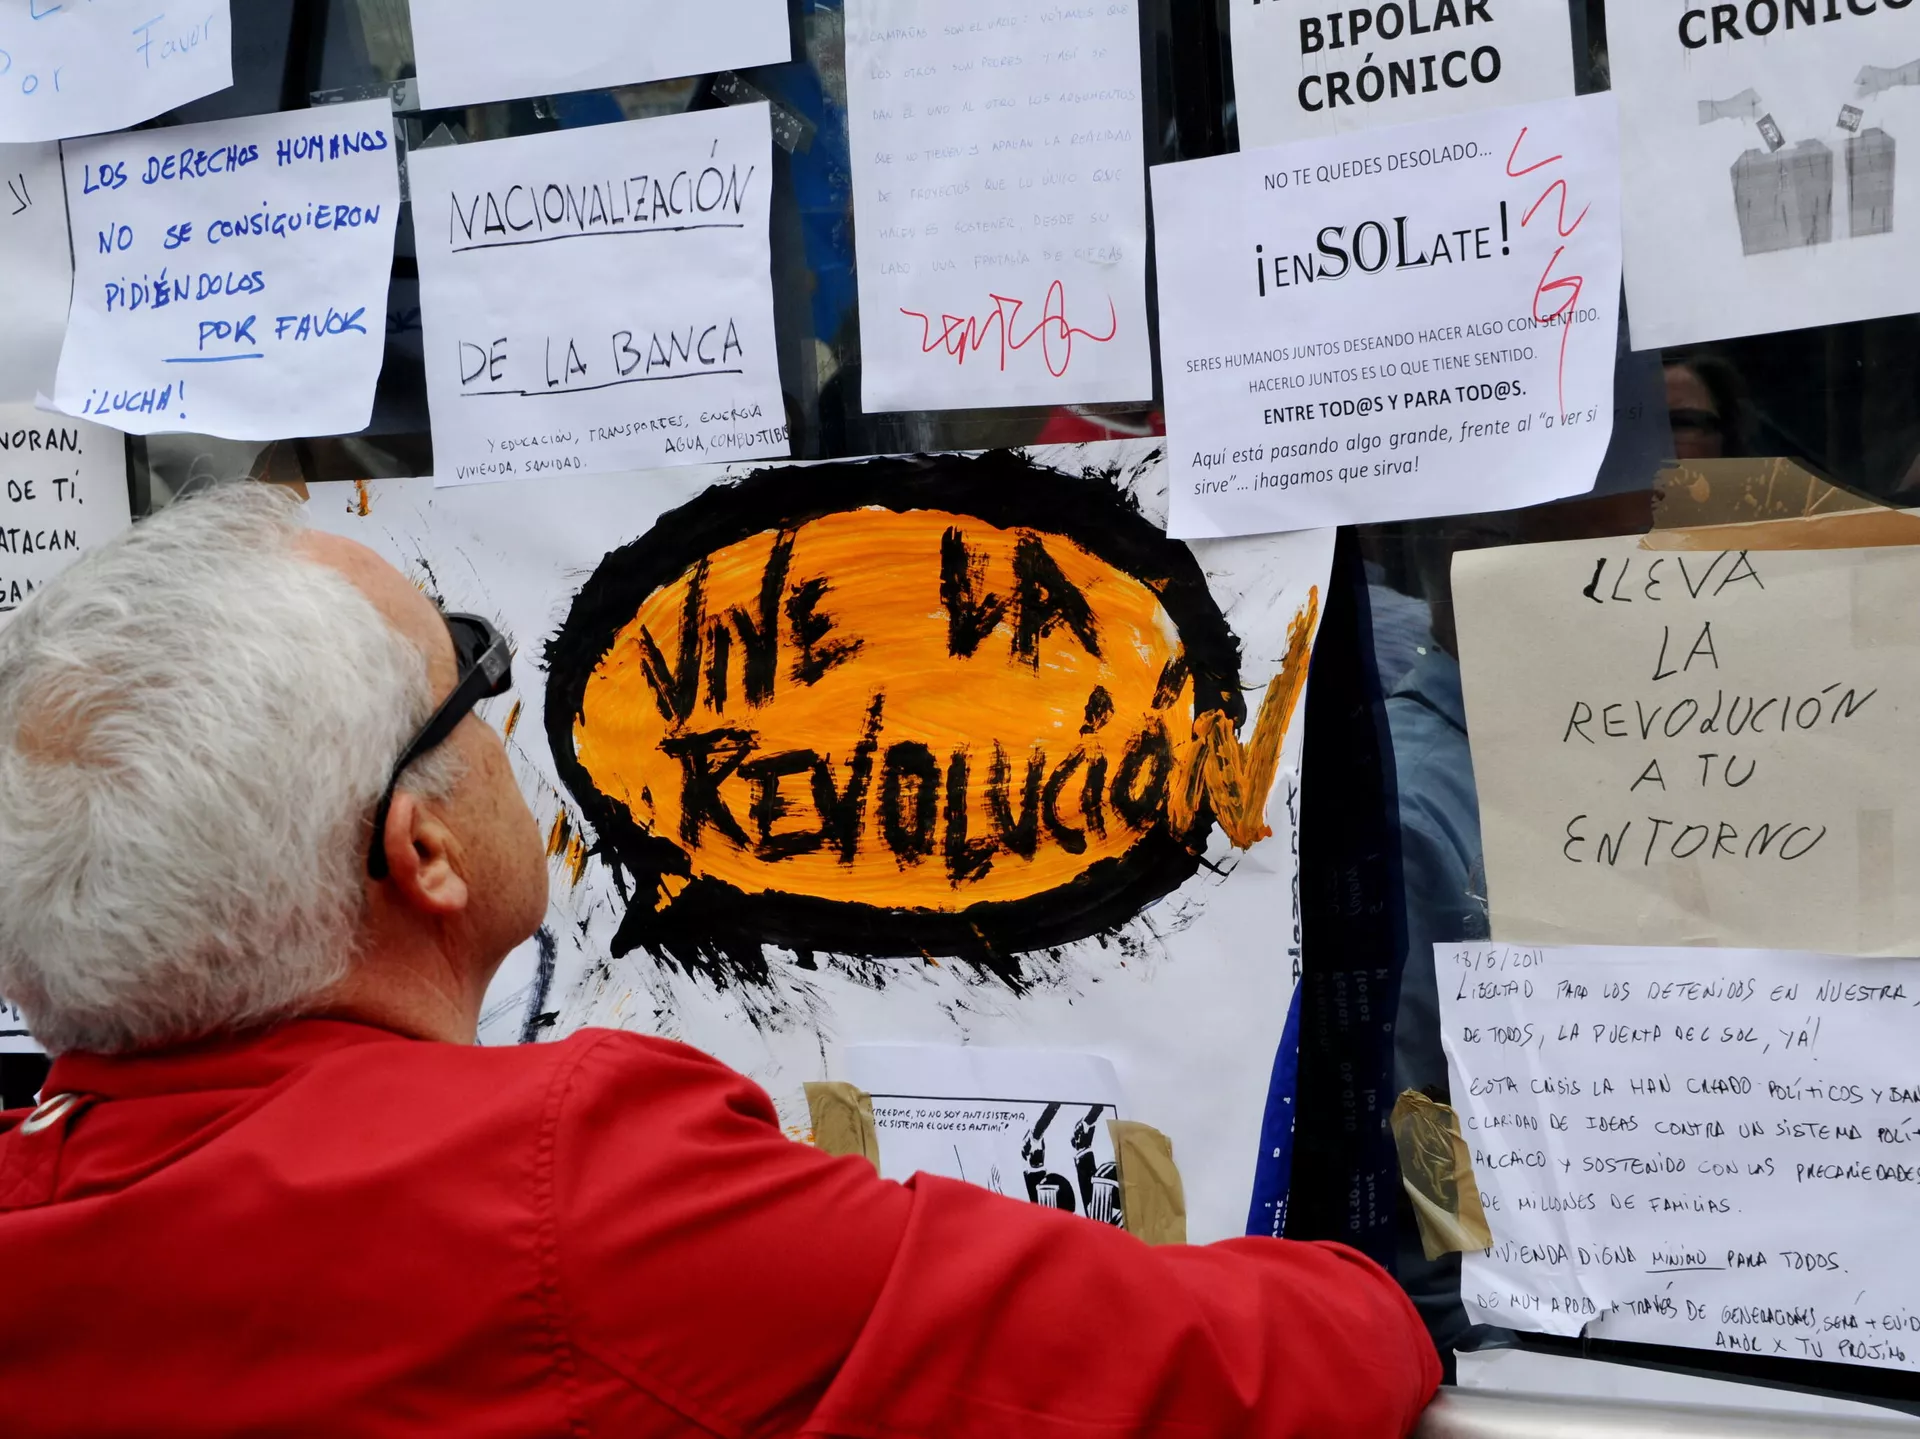 Por Favor
LOS DERECHOS HUMANOS
NO SE CONSIGUIERON
PIDIÉNDOLOS
POR FAVOR
¡LUCHA!
NORAN.
DE TÍ.
ATACAN.
NACIONALIZACIÓN
DE LA BANCA
Y EDUCACIÓN, TRANSPORTES, ENERGÍA
AGUA, COMBUSTIBLE
VIVIENDA, SANIDAD.
CAMPAÑAS SON EL VACÍO: VOTAMOS QUE
LOS OTROS SON PEORES. Y ASÍ SE
DAN EL UNO AL OTRO LOS ARGUMENTOS
QUE NO TIENEN Y APAGAN LA REALIDAD
DE PROYECTOS QUE LO ÚNICO QUE
HACEN ES SOSTENER, DESDE SU
LADO UNA PANTALLA DE CIFRAS
BIPOLAR
CRÓNICO
CRÓNICO
NO TE QUEDES DESOLADO...
¡ENSOLATE!
SERES HUMANOS JUNTOS DESEANDO HACER ALGO CON SENTIDO.
HACERLO JUNTOS ES LO QUE TIENE SENTIDO.
ENTRE TOD@S Y PARA TOD@S.
Aquí está pasando algo grande, frente al "a ver si
sirve"... ¡hagamos que sirva!
VIVE LA
REVOLUCIÓN
LLEVA
LA
REVOLUCIÓN
A TU
ENTORNO
CREEDME, YO NO SOY ANTISISTEMA,
ES EL SISTEMA EL QUE ES ANTIMÍ!
18/5/2011
LIBERTAD PARA LOS DETENIDOS EN NUESTRA,
DE TODOS, LA PUERTA DEL SOL, YÁ!
ESTA CRISIS LA HAN CREADO POLÍTICOS Y BAN
CLARIDAD DE IDEAS CONTRA UN SISTEMA POLÍT
ARCAICO Y SOSTENIDO CON LAS PRECARIEDADES
DE MILLONES DE FAMILIAS.
VIVIENDA DIGNA MÍNIMO PARA TODOS.
DE MUY A POCO, A TRAVÉS DE GENERACIONES, SERÁ + EVID
AMOR X TÚ PRÓJIMO.